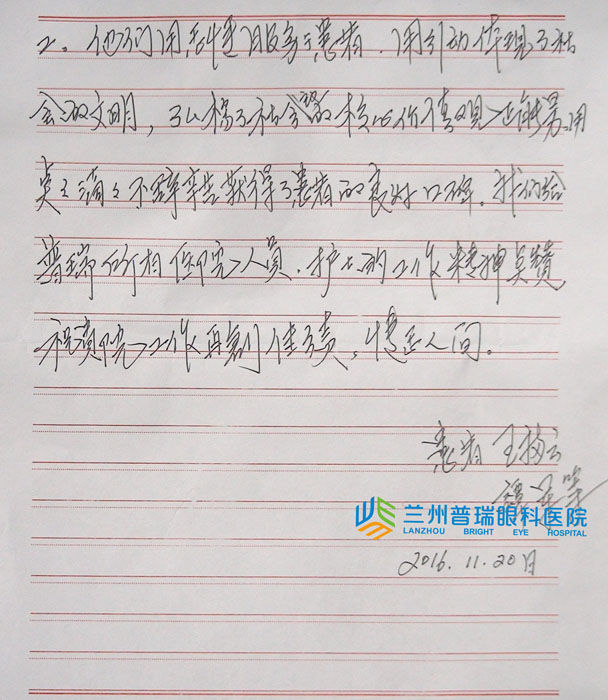 2。他们用热情服务于患者，用行动体现了社
会的文明，弘扬了社会的核心价值观正能量，用
点点滴滴不辞辛苦获得了患者的良好口碑。我们给
普瑞 医 人员、护士的工作精神点赞
祝贵院工作再创佳绩，情 人间。
患者 王
兰州普瑞眼科医院
LANZHOU BRIGHT EYE HOSPITAL
2016.11.20日